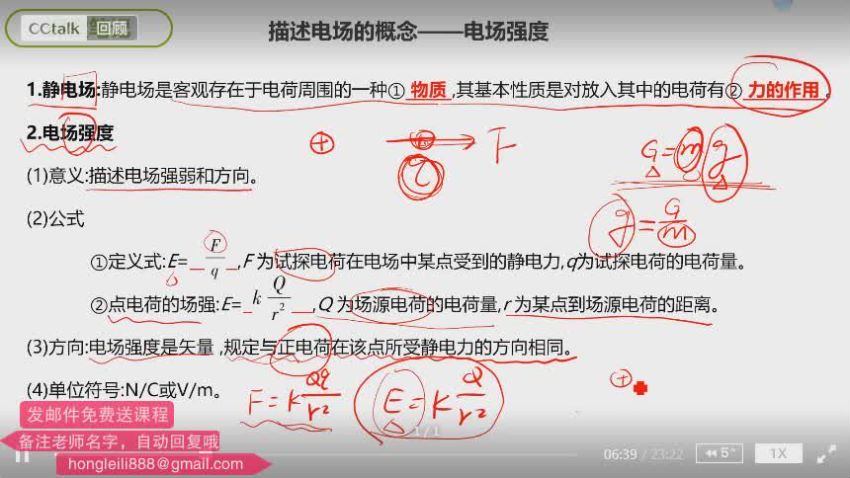 CCtalk 回顾
描述电场的概念——电场强度
1.静电场:静电场是客观存在于电荷周围的一种① 物质 ,其基本性质是对放入其中的电荷有② 力的作用 。
2.电场强度
+ q F
G=mg
g=G/m
(1)意义:描述电场强弱和方向。
(2)公式
①定义式:E= F/q ,F为试探电荷在电场中某点受到的静电力,q为试探电荷的电荷量。
②点电荷的场强:E= k Q/r² ,Q为场源电荷的电荷量,r为某点到场源电荷的距离。
(3)方向:电场强度是矢量,规定与正电荷在该点所受静电力的方向相同。
(4)单位符号:N/C或V/m。
F=K Qq/r² E=K Q/r²
+
发邮件免费送课程
备注老师名字，自动回复哦
hongleili888@gmail.com
1/1
06:39 / 23:22 5" 1X